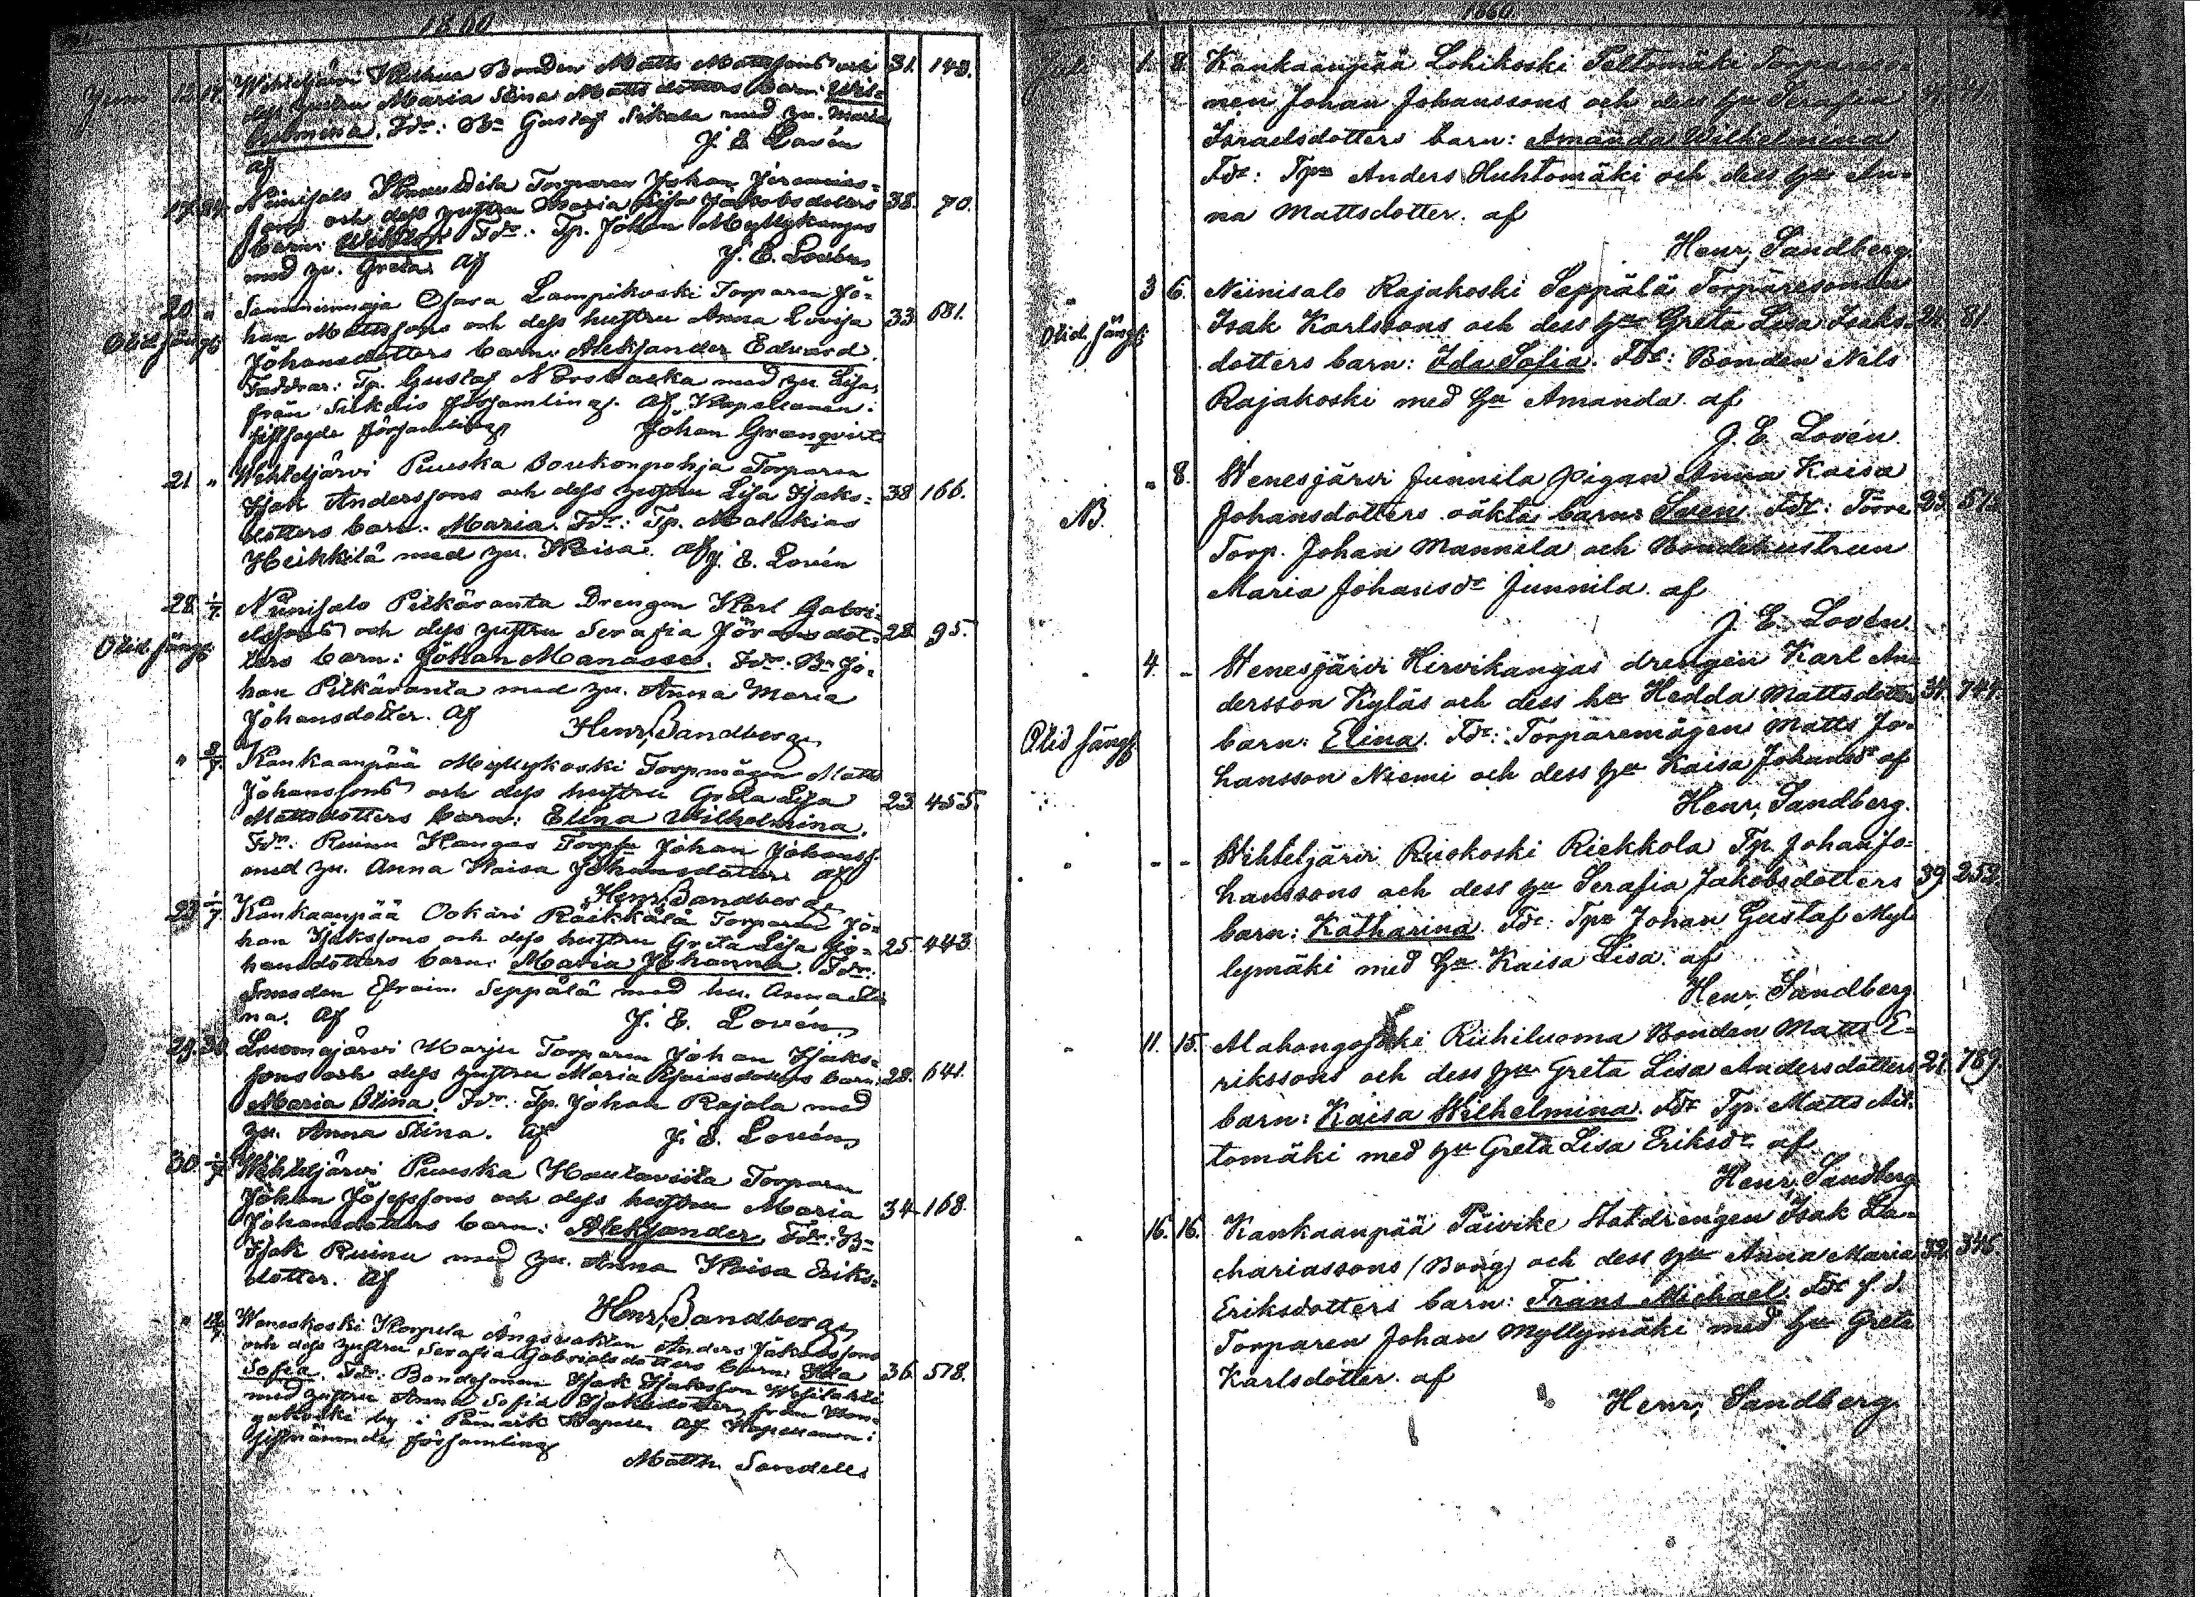 1860
Juni 12. 17. Wihteljärvi Bonden Matts Mattssons och 31. 143.
dess hustru Maria Stina Matts dotters barn: Wil-
helmina. Fdr: Bn Gustaf Sikala med hu. Maria
af J. E. Lovén
17. 24. Niinisalo Torparen Johan Jeremias-
sons och dess hustru Maria Lisa Jakobsdotters 38. 70.
barn: Fdr: Tp. Johan Myllykangas
med hu. Greta. af J. E. Lovén
20. " Lampikoski Torparen Jo-
Olid. sängs han Mattssons och dess hustru Anna Lovisa 33. 681.
Johansdotters barn: Aleksander Edvard.
Faddrar: Tp. Gustaf med hu. Lisa,
från församling. af Kapellanen i
sistsagde församling Johan Granqvist
21 " Wihteljärvi Puuska Torparen
Isak Anderssons och dess hustru Lisa Isaks- 38 166.
dotters barn: Maria. Fdr: Tp. Malakias
Heikkilä med hu. Kaisa. af J. E. Lovén
28. 1/7. Niinisalo Pitkäranta Drengen Karl Gabri-
elssons och dess hustru Serafia Jöransdot- 28. 95.
Olid. sängs ters barn: Johan Manasse. Fdr. Bn Jo-
han Pitkäranta med hu. Anna Maria
Johansdotter. af Henr. Sandberg
" 8/7. Kankaanpää Myllykoski Torpmågen Matts
Johanssons och dess hustru Greta Lisa 23. 455.
Mattsdotters barn: Elina Wilhelmina.
Fdr. Ruinu Kangas Johan Johanss.
med hu. Anna Kaisa Johansdotter af
Henr. Sandberg
29. 1/7. Kankaanpää Ookäri Räikkälä Torparen Jo-
han Isakssons och dess hustru Greta Lisa Jo- 25. 443.
hansdotters barn: Maria Johanna. Fdr:
Smeden Efraim Seppälä med hu. Anna Sti
na. af J. E. Lovén
29. 30. Luomajärvi Harju Torparen Johan Isaks-
sons och dess hustru Maria Esaiasdotters barn: 28. 641.
Maria Stina. Fdr: Tp. Johan Rajala med
hu. Anna Stina. af J. E. Lovén
30. 1/7. Wihteljärvi Puuska Hautaviita Torparen
Johan Josefssons och dess hustru Maria 34. 168.
Johansdotters barn: Aleksander. Fdr: Bn
Isak Ruinu med hu. Anna Kaisa Eriks-
dotter. af
Henr. Sandberg
" Korpela Anders Jakobssons
och dess hustru Serafia Gabrielsdotters barn: Ida
Sofia. Fdr: Bondesonen Isak Isaksson 36. 578.
med hustru Anna Sofia Isaksdotter från
by i Påmark Kapell. af Kapellanen i
sistnämnde församling
Matth. Sandell
1860
Juli 1. 8. Kankaanpää Lohikoski Peltomäki Torpareso-
nen Johan Johanssons och dess hu Serafia
Israelsdotters barn: Amanda Wilhelmina
Fdr: Tpn Anders Huhtomäki och dess hu An-
na Mattsdotter. af
Henr. Sandberg.
" 3 6. Niinisalo Rajakoski Seppälä Torparesonen
Olid. sängs Isak Karlssons och dess hu Greta Lisa Isaks- 24. 81.
dotters barn: Ida Sofia. Fdr: Bonden Nils
Rajakoski med hu Amanda. af
J. E. Lovén.
" 8. Wenesjärvi Junnila pigan Anna Kaisa
NB. Johansdotters oäkta barn: Sven. Fdr: Torre 23.
Torp. Johan Mannila och Bondehustrun
Maria Johansdr Junnila. af
J. E. Lovén.
" 4. - Wenesjärvi Hirvikangas drengen Karl An-
dersson Kyläs och dess hu Hedda Mattsdotters 34. 741.
Olid sängs barn: Elina. Fdr: Torparemågen Matts Jo-
hansson Niemi och dess hu Kaisa Johansdr af
Henr. Sandberg.
" - - Wihteljärvi Ruokoski Riekkola Tp. Johan Jo-
hanssons och dess hu Serafia Jakobsdotters 39. 252.
barn: Katharina. Fdr: Tpn Johan Gustaf Myl-
lymäki med hu Kaisa Lisa. af
Henr. Sandberg
" 11. 15. Alahongojoki Riihiluoma Bonden Matts E-
rikssons och dess hu Greta Lisa Andersdotters 27. 789.
barn: Kaisa Wilhelmina. Fdr Tp. Matts Nit-
tomäki med hu Greta Lisa Eriksdr af
Henr. Sandberg
" 16. 16. Kankaanpää Päivike Statdrengen Isak Za-
chariassons (Bong) och dess hu Anna Maria 32. 346
Eriksdotters barn: Frans Michael. Fdr f. d.
Torparen Johan Myllymäki med hu Greta
Karlsdotter. af
Henr. Sandberg.